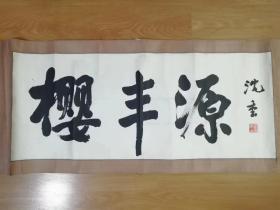 源丰樱
沈重